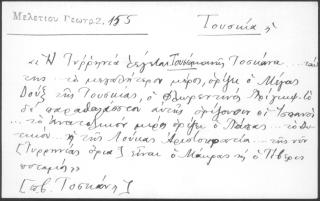 Μελετίου Γεωγρ. 2, 155
Τουσκία ἡ
« Ἡ Τυρρηνία λέγεται Τουσκανία, Τοσκανα ...
της ... τὸ μεγαλήτερον μέρος, ὁρίζει ὁ Μέγας
Δούξ τῆς Τουσκίας, ὁ Φλωρεντίνος
δὲ παραθαλάσσιον αὐτῆς ὁρίζουσιν οἱ Ἱσπανοί
... τὸ Ἀνατολικὸν μέρος ὁρίζει ὁ Πάπας ... τὸ Δυ-
τικόν ... ἡ τῆς Λούκας Ἀριστοκρατία ... τῆς νῦν
[Τυρρηνίας ὅρια] εἶναι ὁ Μάκρας καὶ ὁ Τίβερις
ποταμός»
[πβ. Τοσκάνη]